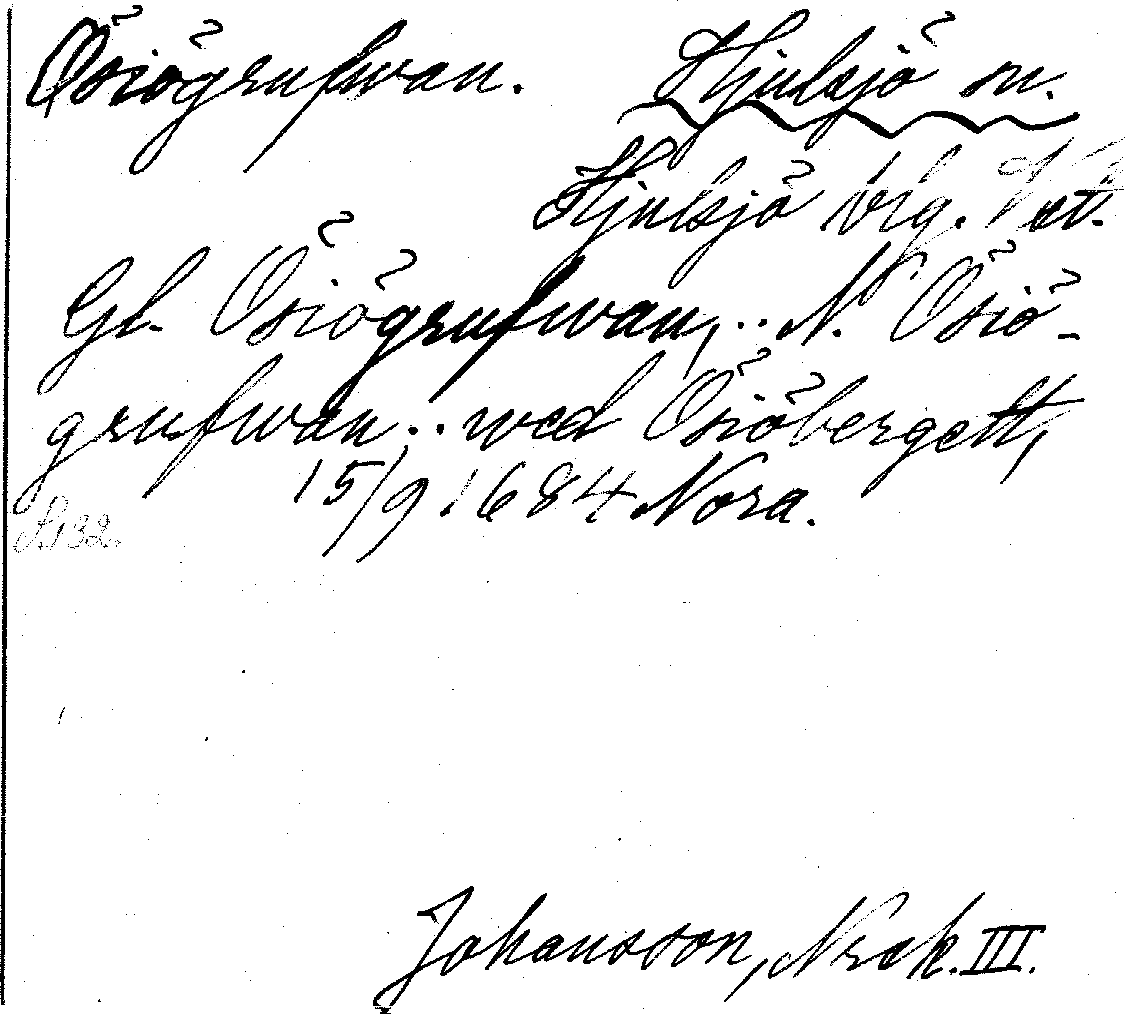 Ösiögrufwan. Hjulsjö sn.
Hjulsjö brg. Vet.
Gl. Ösiögrufwan, .. N. Ösiö-
grufwan .. wed Ösiöbergett,
15/9 1684 Nora.
S. 132.
Johansson, Nrak. III.